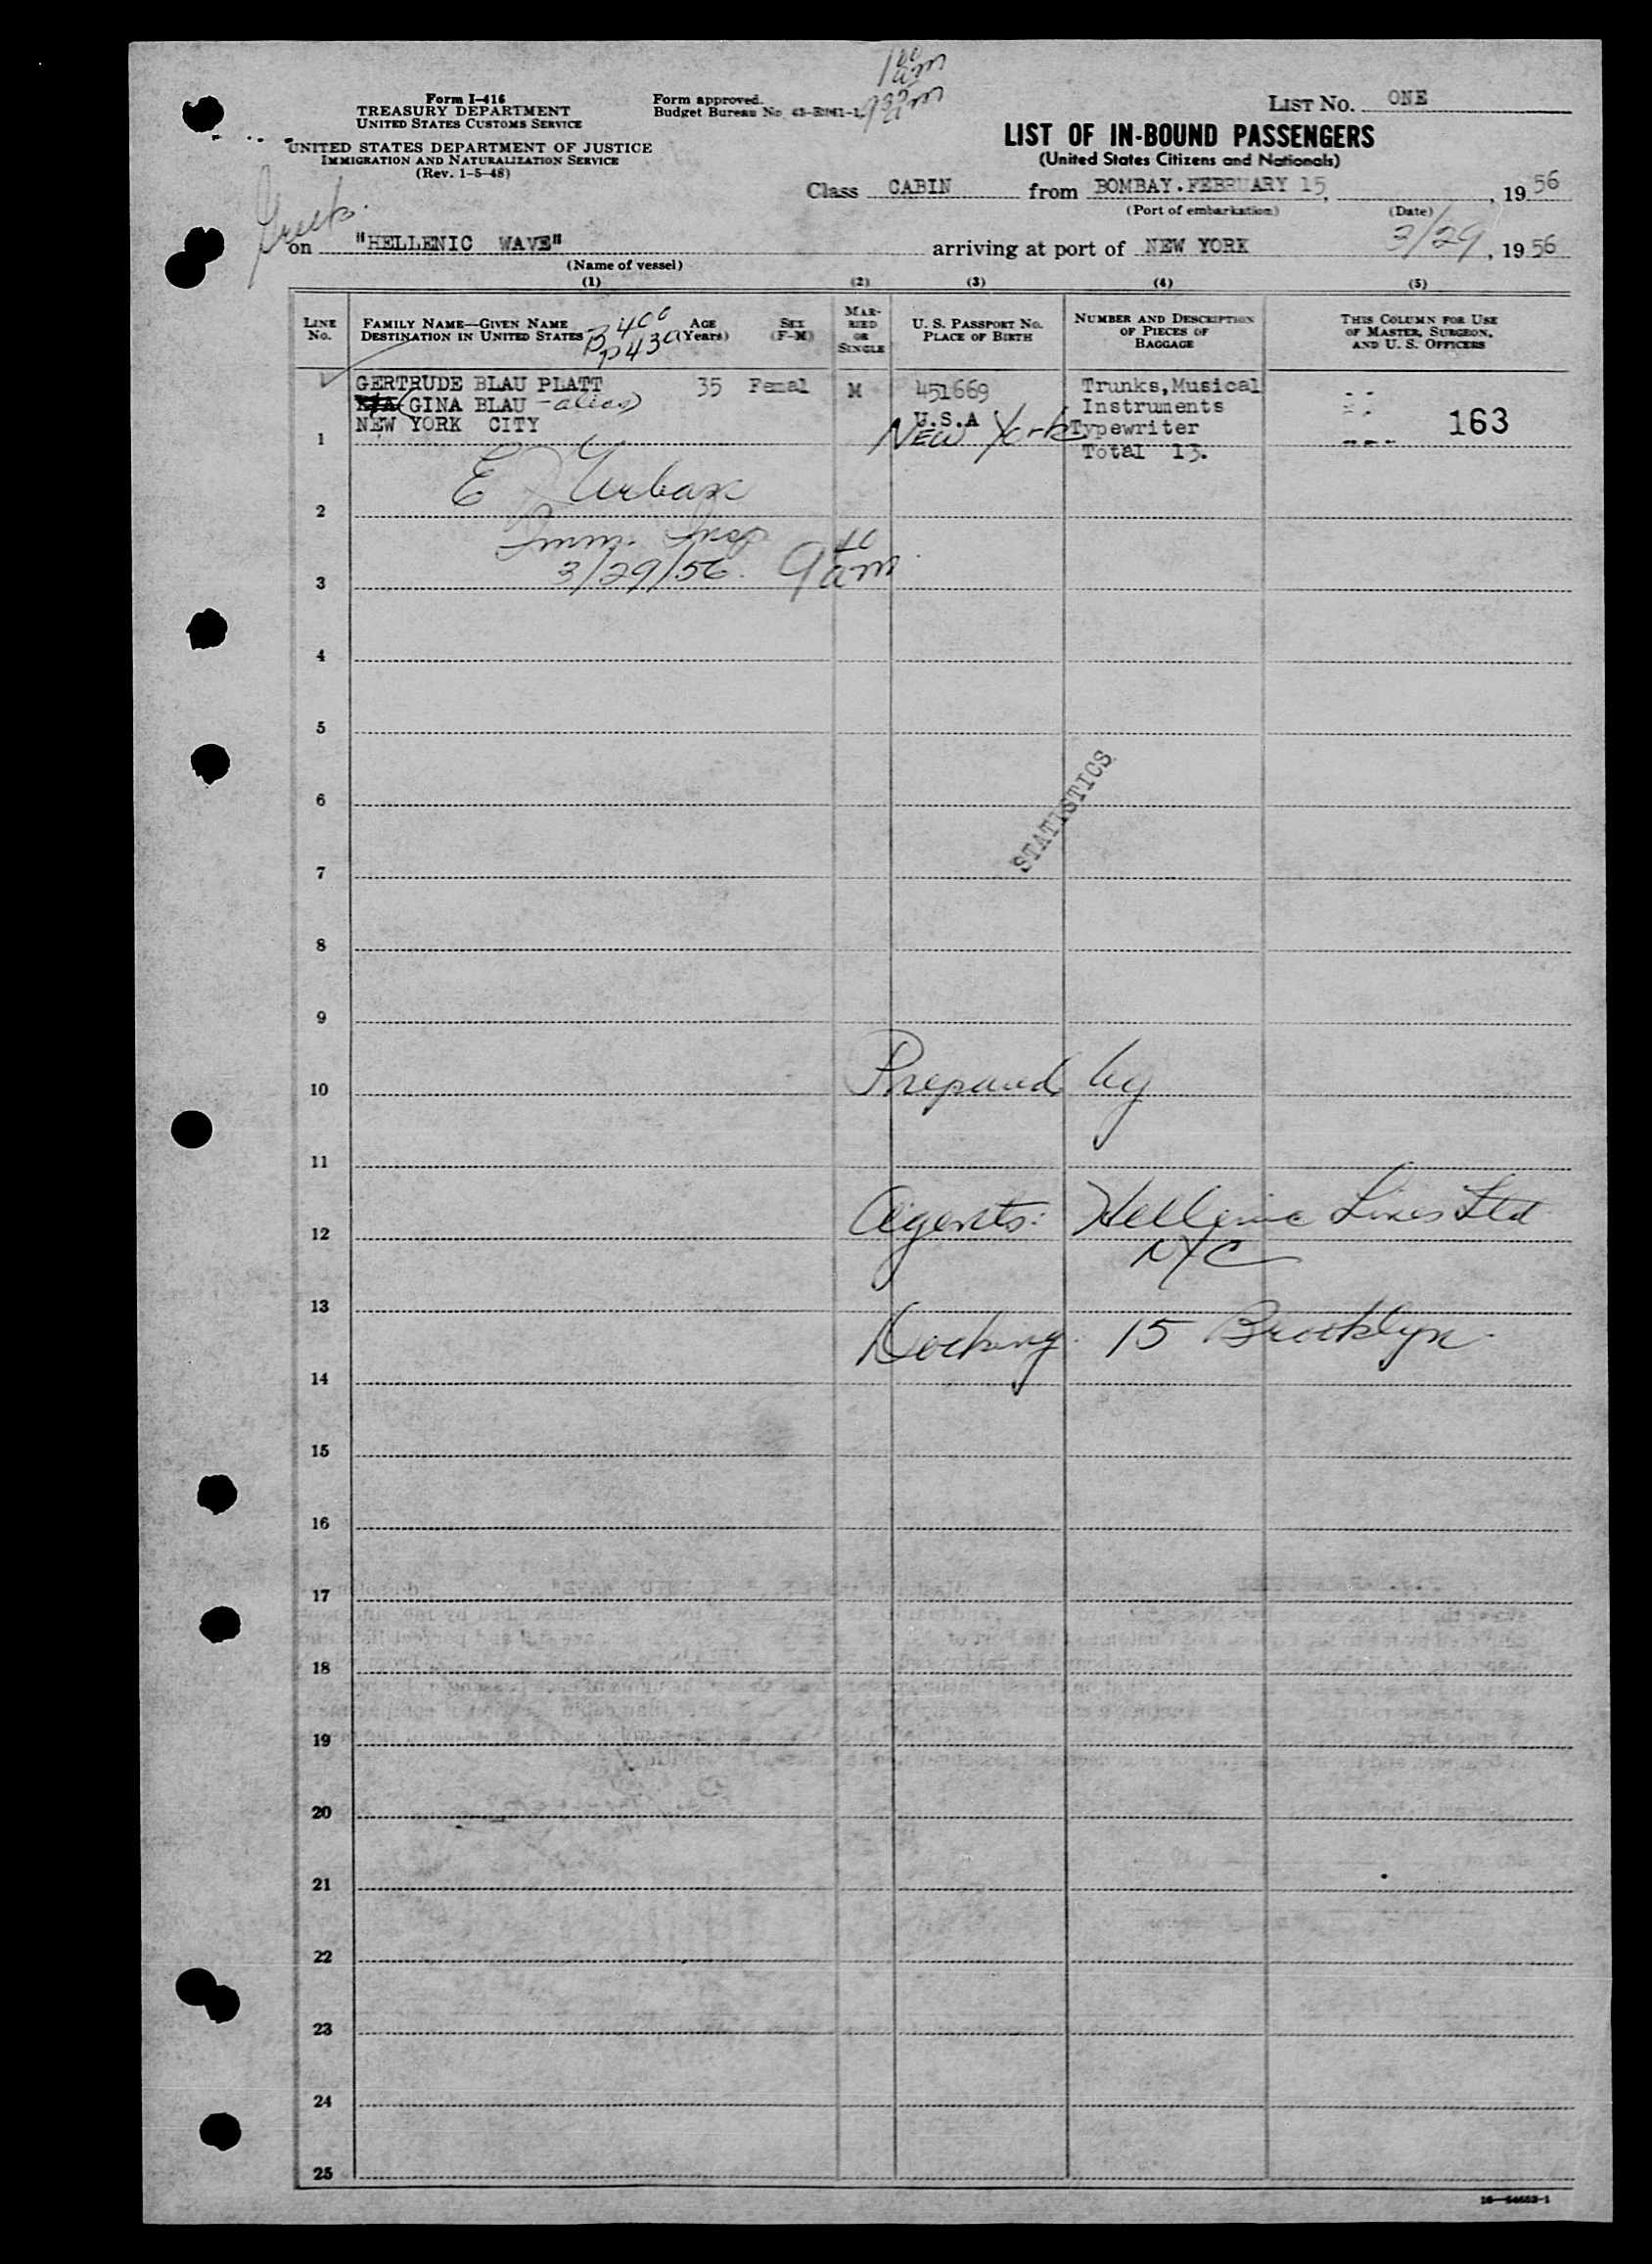 1 00 am
9 30 am
Form I-416
TREASURY DEPARTMENT
UNITED STATES CUSTOMS SERVICE
UNITED STATES DEPARTMENT OF JUSTICE
IMMIGRATION AND NATURALIZATION SERVICE
(Rev. 1-5-48)
Form approved.
Budget Bureau No.
LIST No. ONE
LIST OF IN-BOUND PASSENGERS
(United States Citizens and Nationals)
Class CABIN from BOMBAY.FEBRUARY 15, , 19 56
(Port of embarkation) (Date)
Greek.
on "HELLENIC WAVE" arriving at port of NEW YORK 3/29, 19 56
(Name of vessel)
(1) (2) (3) (4) (5)
LINE No.
FAMILY NAME—GIVEN NAME
DESTINATION IN UNITED STATES
B 400
P430
AGE (Years)
SEX (F-M)
MARRIED OR SINGLE
U. S. PASSPORT No.
PLACE OF BIRTH
NUMBER AND DESCRIPTION OF PIECES OF BAGGAGE
THIS COLUMN FOR USE OF MASTER, SURGEON, AND U. S. OFFICERS
GERTRUDE BLAU PLATT 35 Femal M 451669 Trunks,Musical
(GINA BLAU - alias) U.S.A Instruments 163
NEW YORK CITY New York Typewriter
1
Total 13.
E Urban
2
Imm. Insp
3/29/56. 9 40 am
3
4
5
6
STATISTICS
7
8
9
10 Prepared by
11
12 Agents: Hellenic Lines Ltd
NYC
13
Docking. 15 Brooklyn.
14
15
16
17
18
19
20
21
22
23
24
25